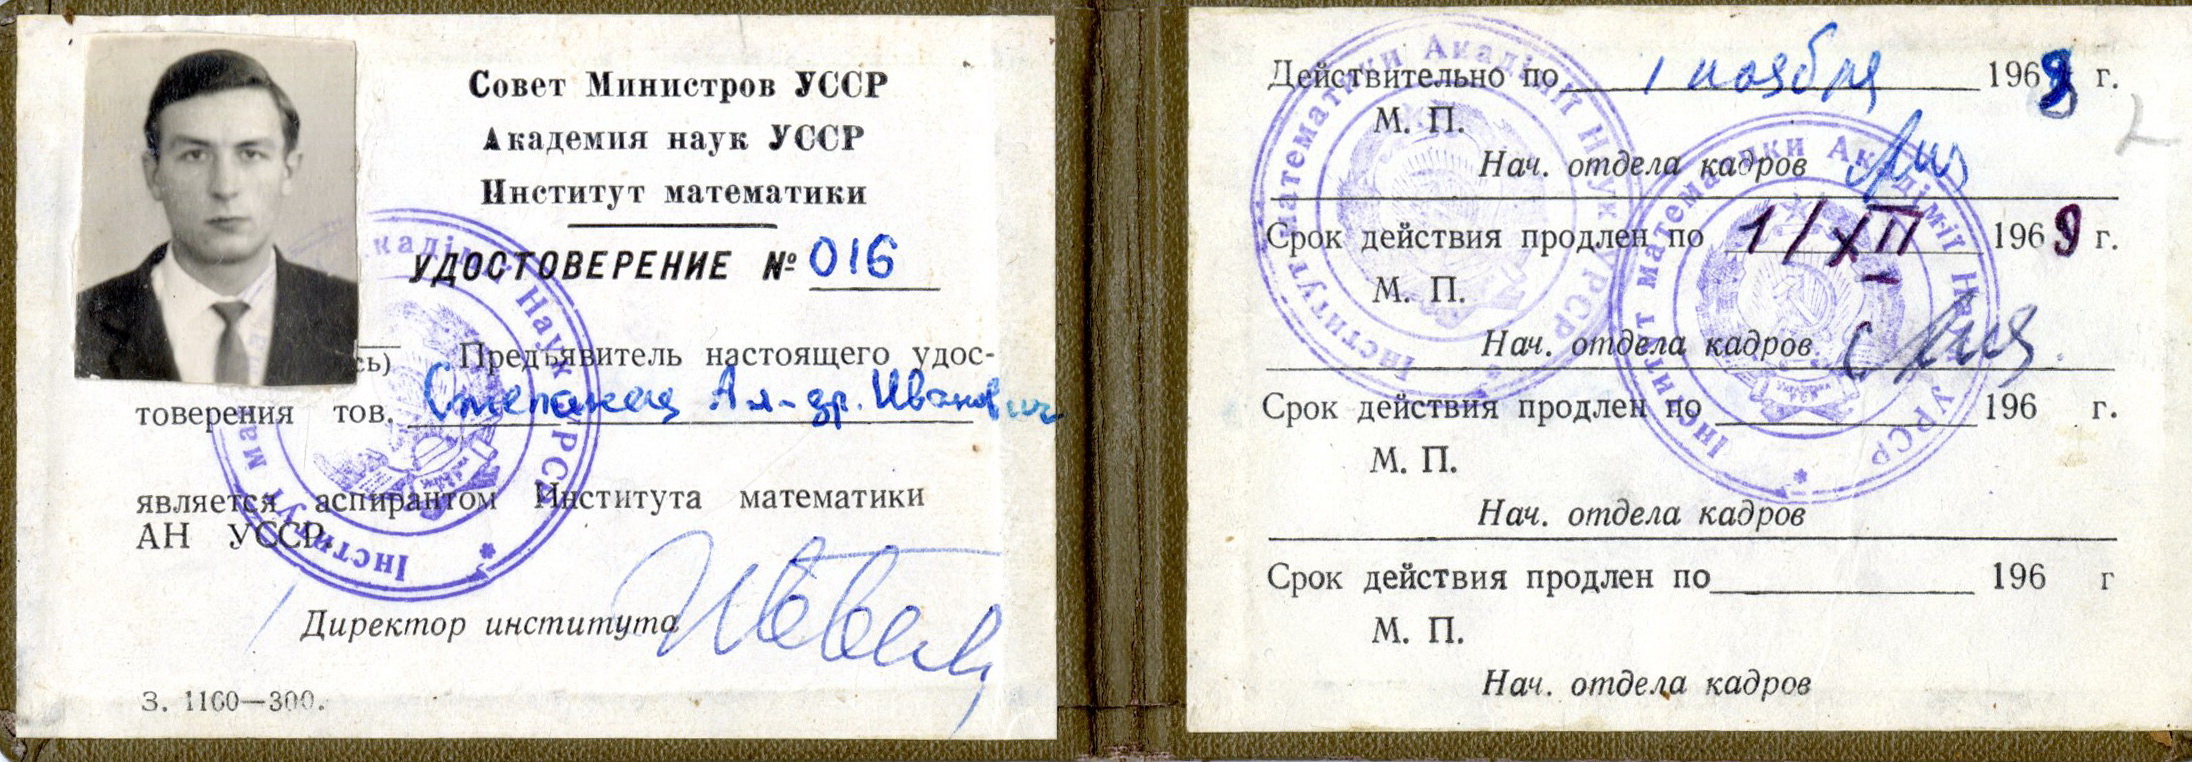 Совет Министров УССР
Академия наук УССР
Институт математики
УДОСТОВЕРЕНИЕ № 016
сь) Предъявитель настоящего удос-
товерения тов. Степанец Ал-др. Иванович
является аспирантом Института математики
АН УССР.
Директор института
З. 1160—300.
Інститут ма кадемії Наук УРСР
Действительно по 1 ноября 1969 г.
М. П.
Нач. отдела кадров
Срок действия продлен по 1/XII 1969 г.
М. П.
Нач. отдела кадров
Срок действия продлен по 196 г.
М. П.
Нач. отдела кадров
Срок действия продлен по 196 г
М. П.
Нач. отдела кадров
Інститут математики Академії Наук УРСР
Інститут математики Академії Наук УРСР